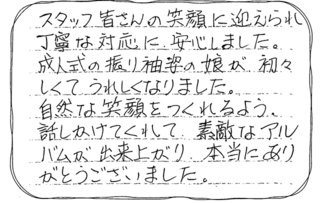 スタッフ皆さんの笑顔に迎えられ
丁寧な対応に、安心しました。
成人式の振り袖姿の娘が、初々
しくてうれしくなりました。
自然な笑顔をつくれるよう、
話しかけてくれて、素敵なアル
バムが出来上がり、本当にあり
がとうございました。